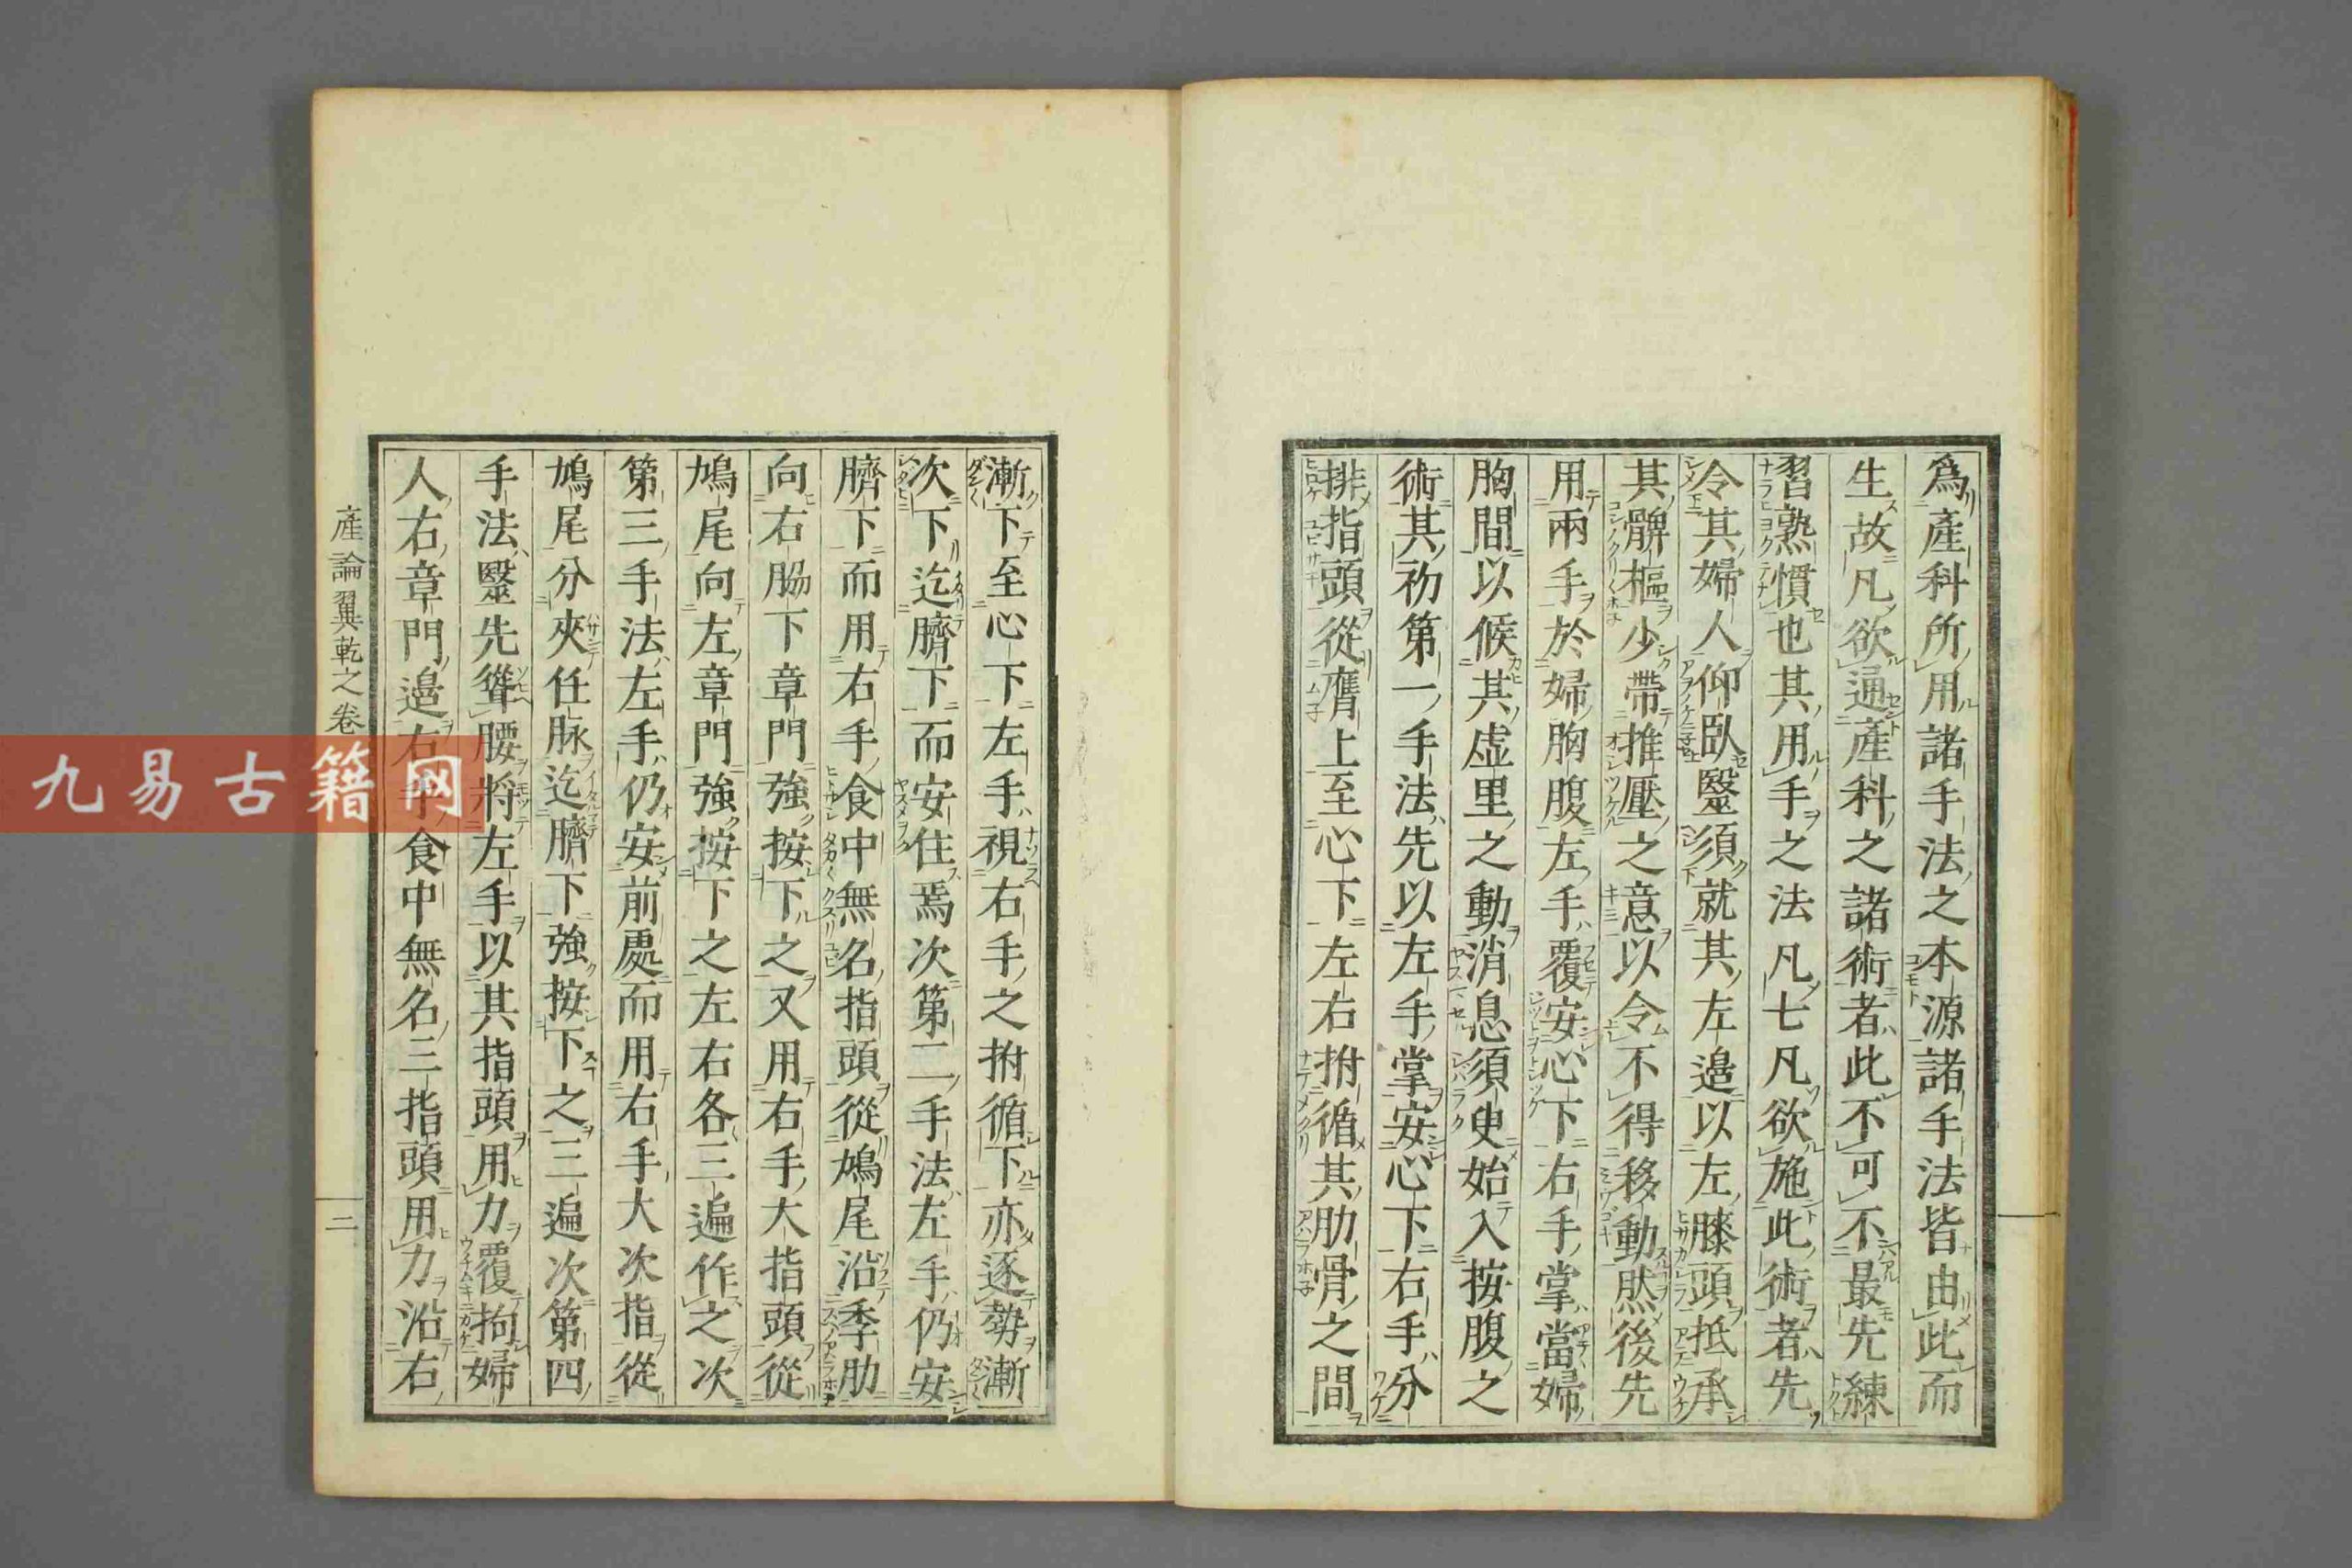 爲產科所用諸手法之本源諸手法皆由此而
生故凡欲通產科之諸術者此不可不最先練
習熟慣也其用手之法凡七凡欲施此術者先
令其婦人仰臥毉須就其左邉以左膝頭抵承
其髀樞少帶推壓之意以令不得移動然後先
用兩手於婦胸腹左手覆安心下右手掌當婦
胸間以候其虛里之動消息須臾始入按腹之
術其初第一手法先以左手掌安心下右手分
排指頭從膺上至心下左右拊循其肋骨之間
漸下至心下左手視右手之拊循下亦逐勢漸
次下迄臍下下而安住焉次第二手法左手仍安
臍下而用右手食中無名指頭從鳩尾沿季肋
向右脇下章門強按下之又用右手大指頭從
鳩尾向左章門強按下之左右各三遍作之次
第三手法左手仍安前處而用右手大次指從
鳩尾分夾任脉迄臍下強按下之三遍次第四
手法毉先聳腰將左手以其指頭用力覆拘婦
人右章門邉右手食中無名三指頭用力沿右
產論翼乾之卷
二
九易古籍网